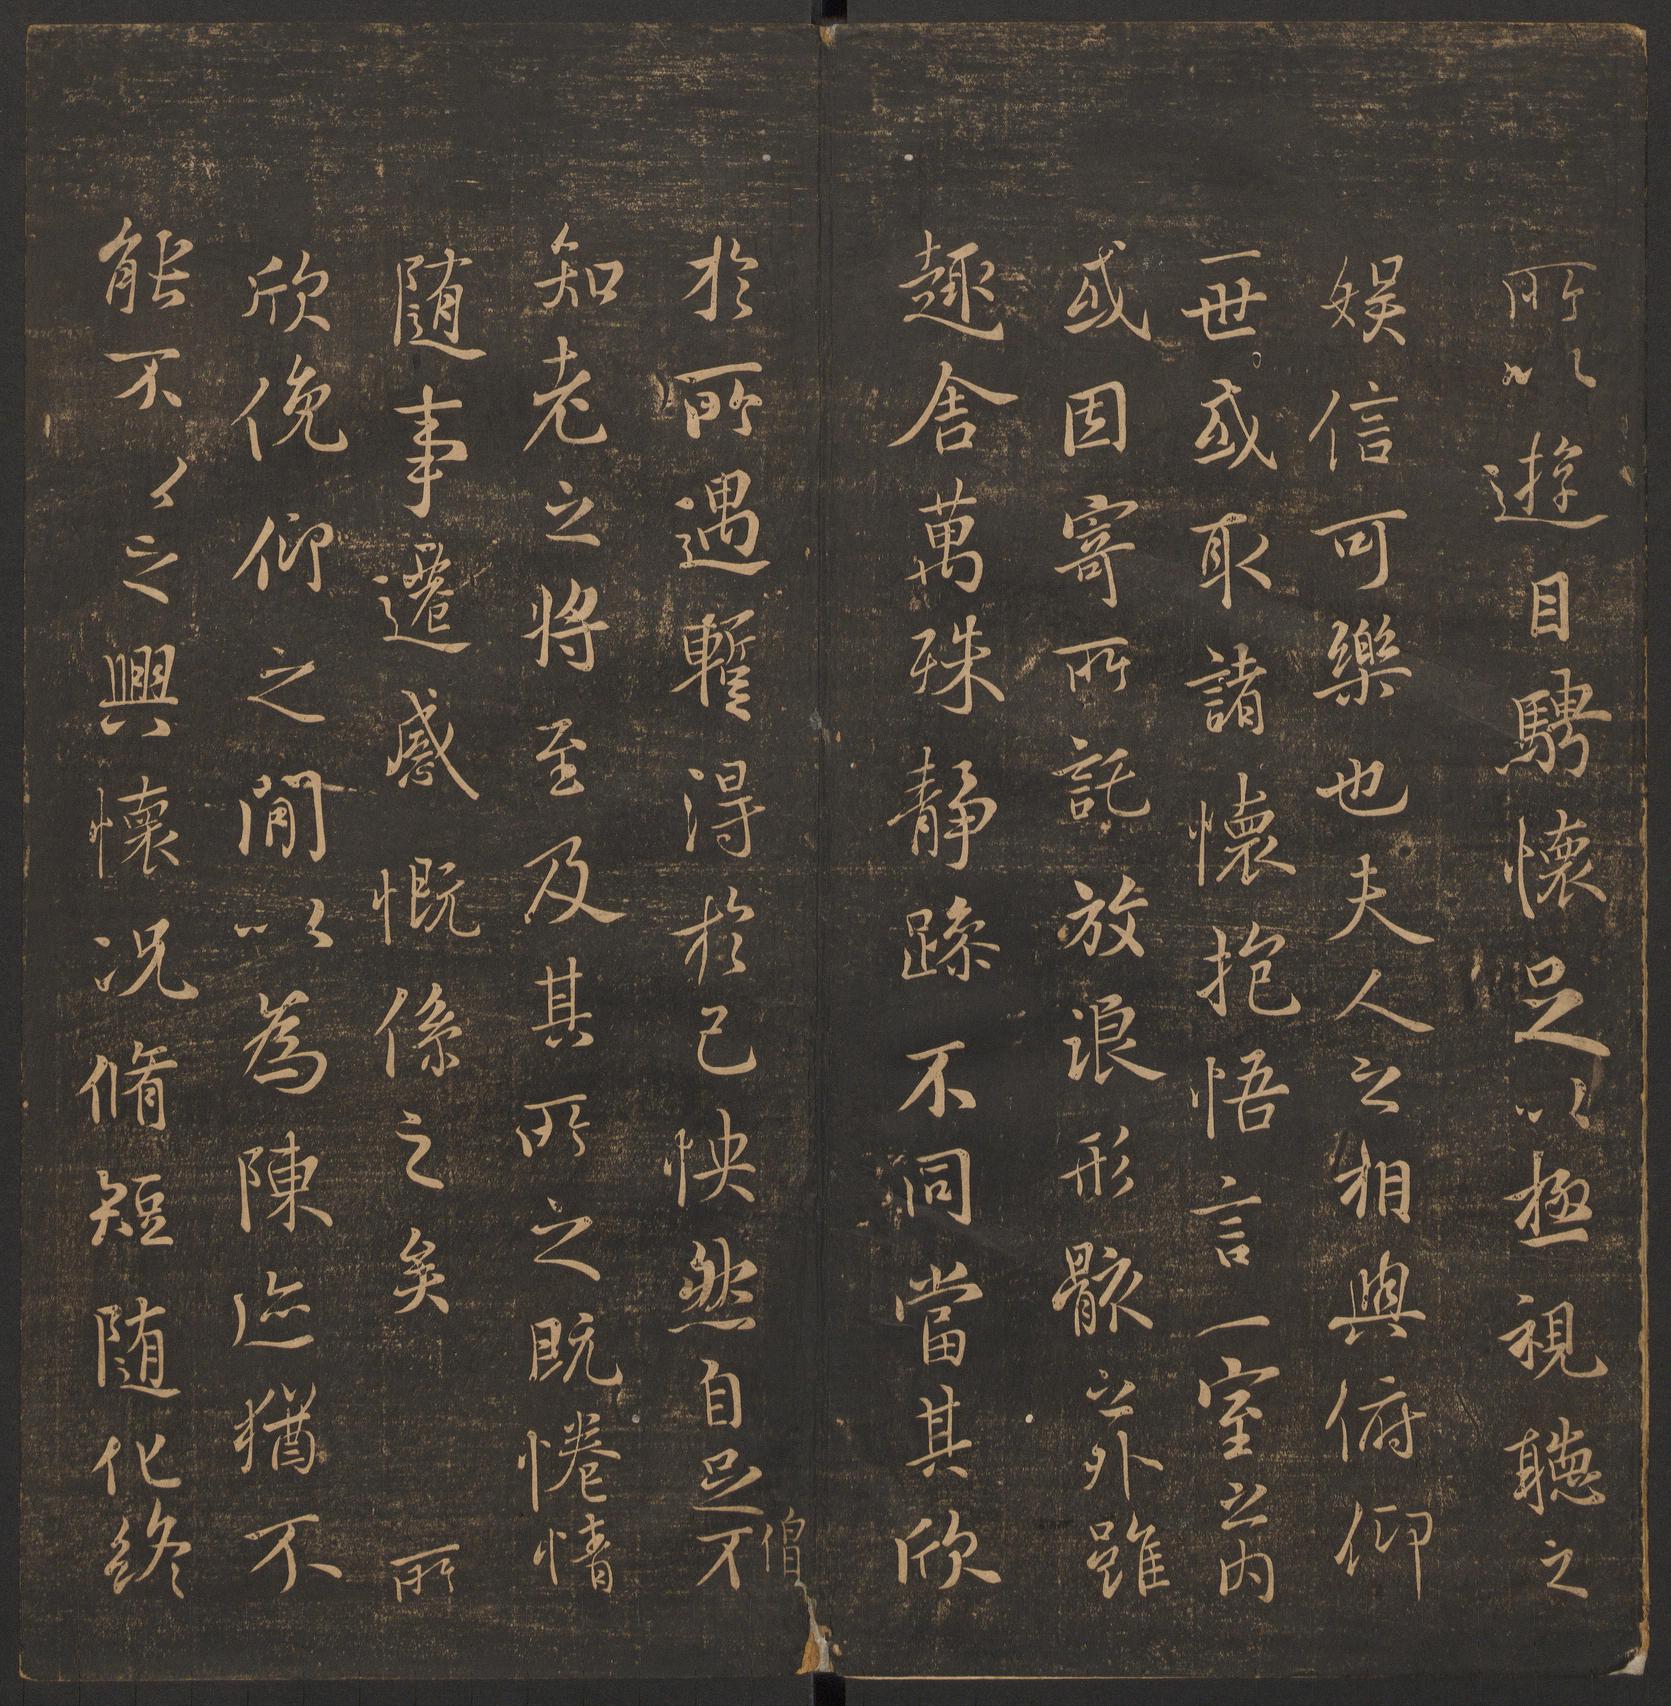 所以遊目騁懷足以極視聽之
娛信可樂也夫人之相與俯仰
一世或取諸懷抱悟言一室之内
或因寄所託放浪形骸之外雖
趣舍萬殊静躁不同當其欣
於所遇暫得於己怏然自足不
僧
知老之将至及其所之既惓情
随事遷感慨係之矣所
欣俛仰之間以為陳迹猶不
能不〻之興懷况脩短随化終